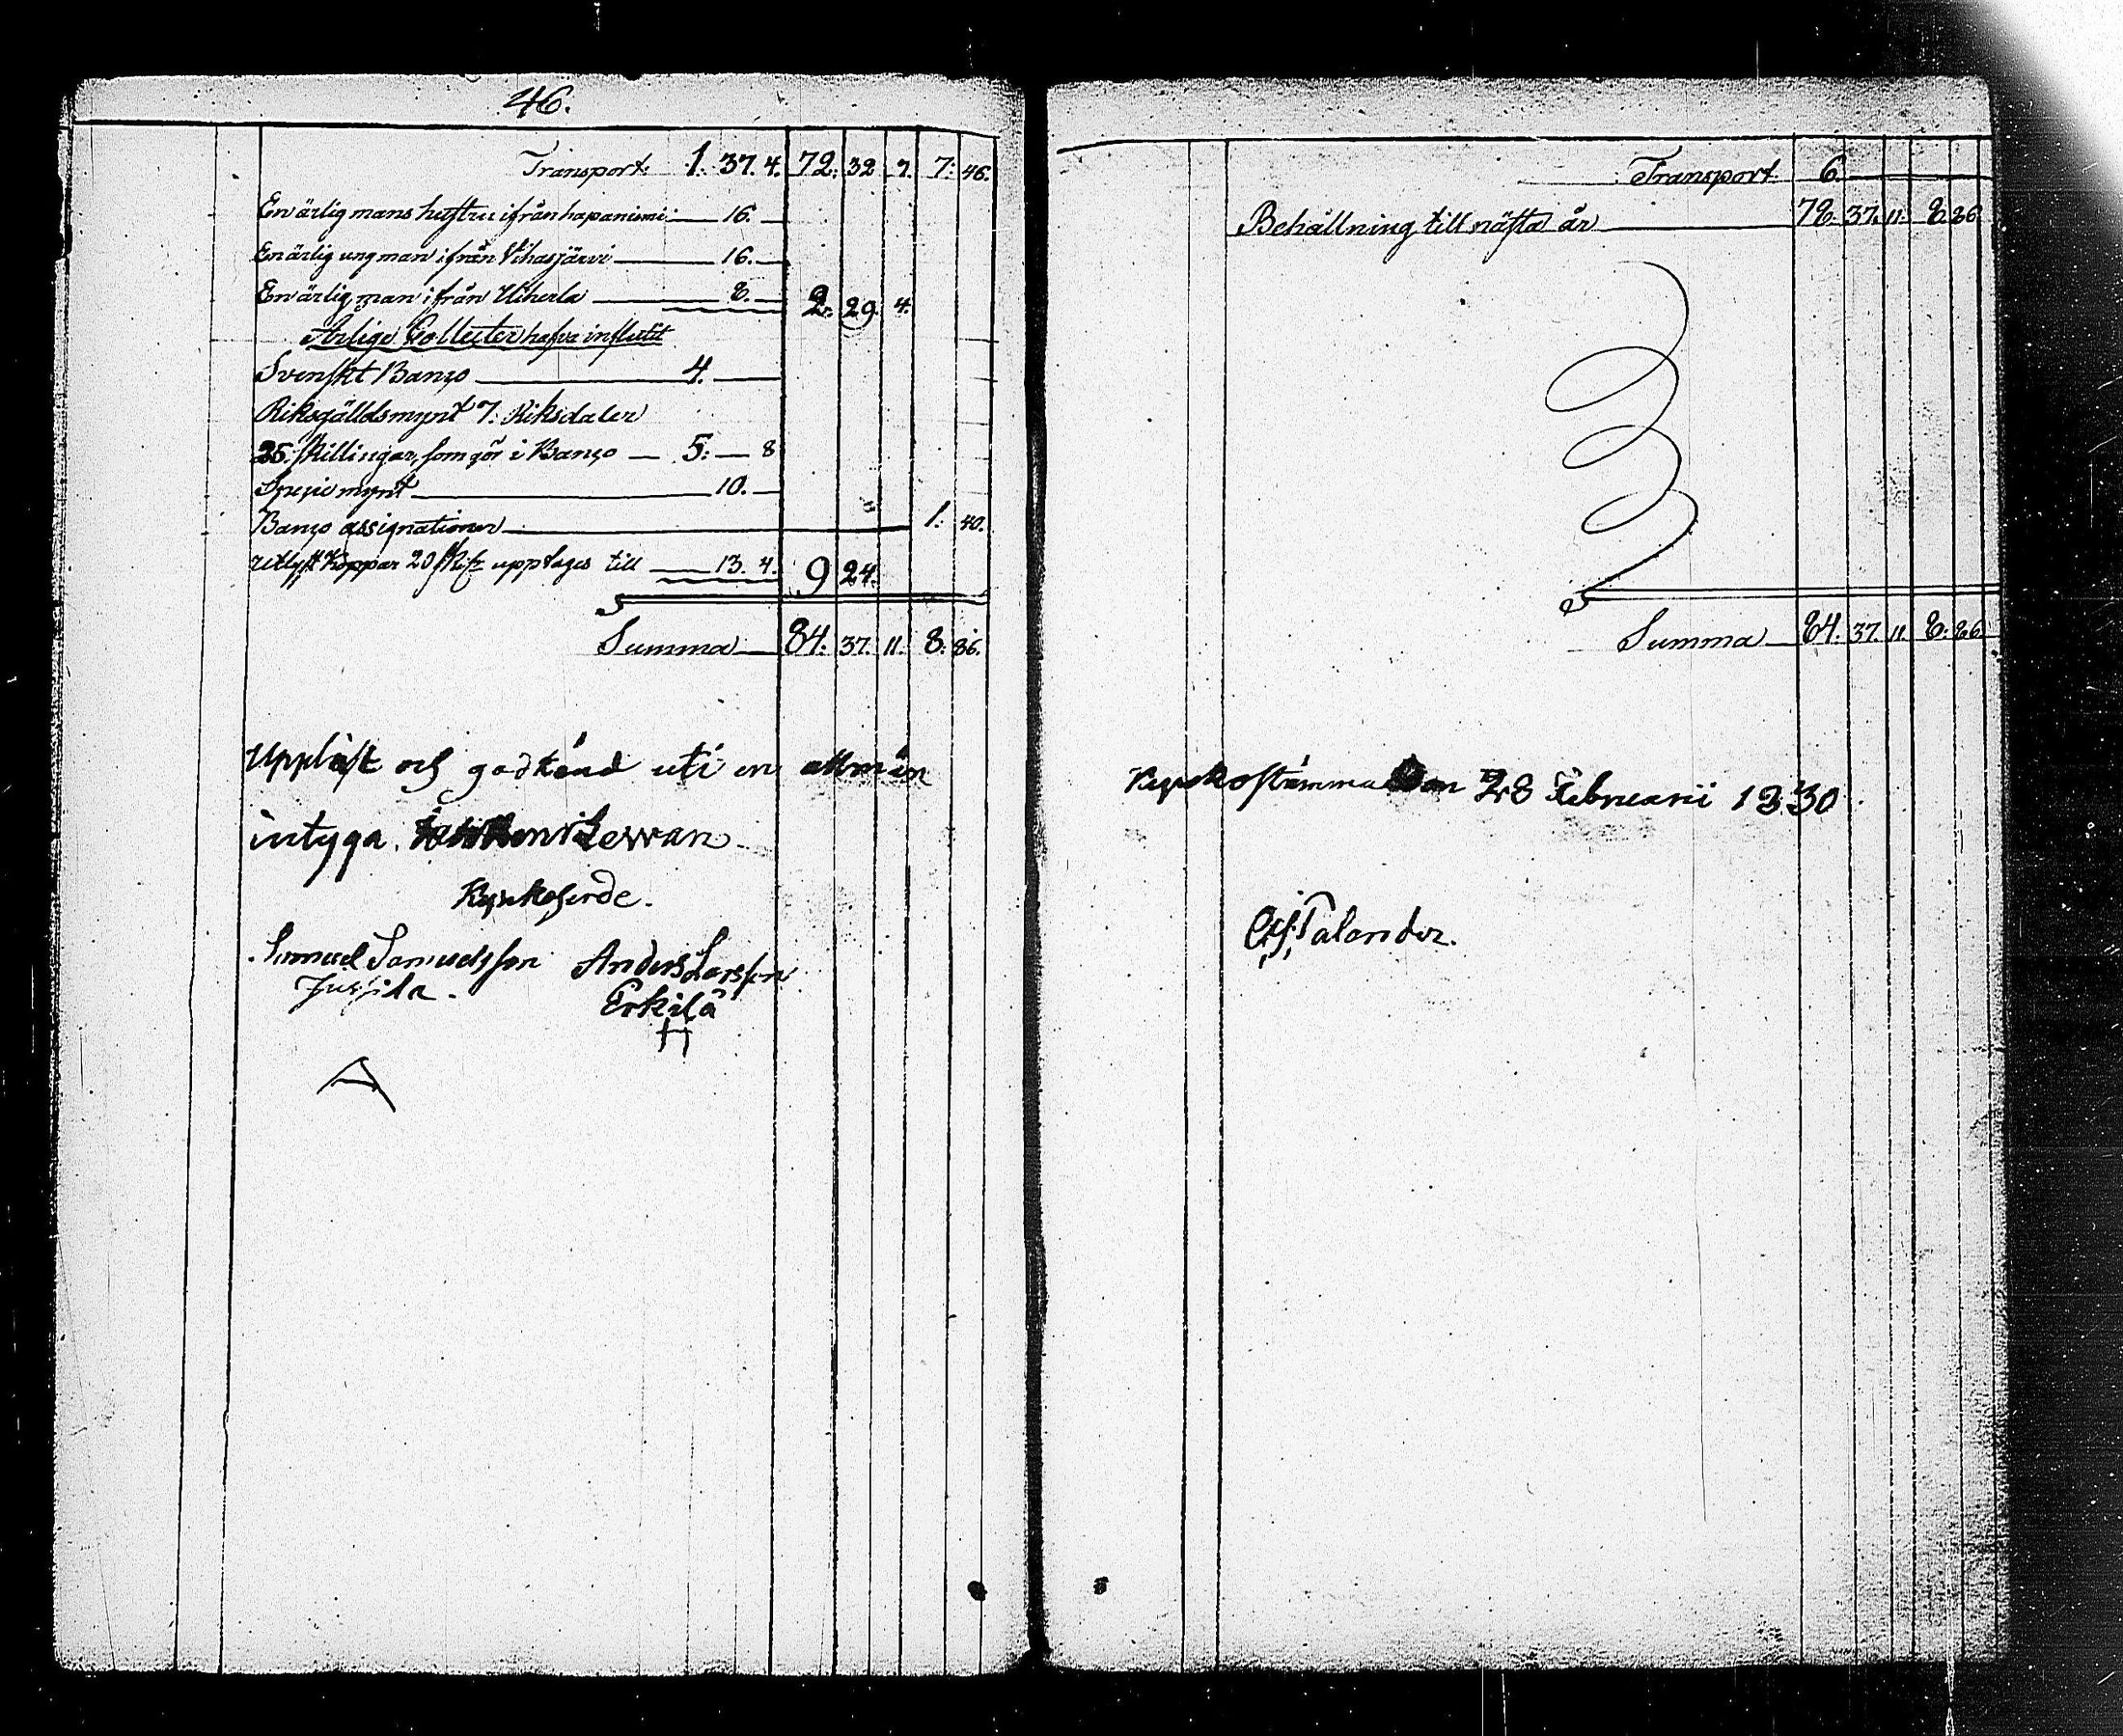 46.
Transport. 1. 37. 4. 72. 32 7. 7. 46.
En ärlig mans hustru ifrån hapaniemi 16.
En ärlig ung man ifrån Vihasjärvi 16.
En ärlig man ifrån Uiherla 8. 2. 29. 4.
Årlige Collecter hafva influtit
Svenskt Banço 4.
Riksgäldsmynt 7. Riksdaler
25. skillingar, som gör i Banço 5. 8
Specie mynt 10.
Banço assignationer 1. 40.
Utlyft Koppar 20 sk. upptages till 13. 4. 9 24.
Summa 84. 37. 11. 8. 86.
Uppläst och godkänd uti en allmän
intyga.
Kyrkoherde.
Samuel Samuelsson Anders Larsson
Jussila. Erkilä
Transport 6.
Behållning till nästa år 78. 37. 11. 8. 86
Summa 84. 37. 11. 8. 86.
Kyrkostämma den 28 Februarii 1830
Palander.